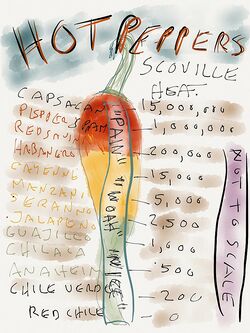 HOT PEPPERS
SCOVILLE
CAPSACAN 15,000,000
PEPPER SPRAY
RED SAVIN 1,000,000
HABANERO 200,000
CAYENNE
MANZANO 15,000
SERANNO 5,000
JALAPENO 2,500
GUAJILLO
CHILACA 1,000
ANAHEIM 500
CHILE VERDE 200
RED CHILE 0
"PAIN"
"WOAH"
"NICE"
NOT TO SCALE